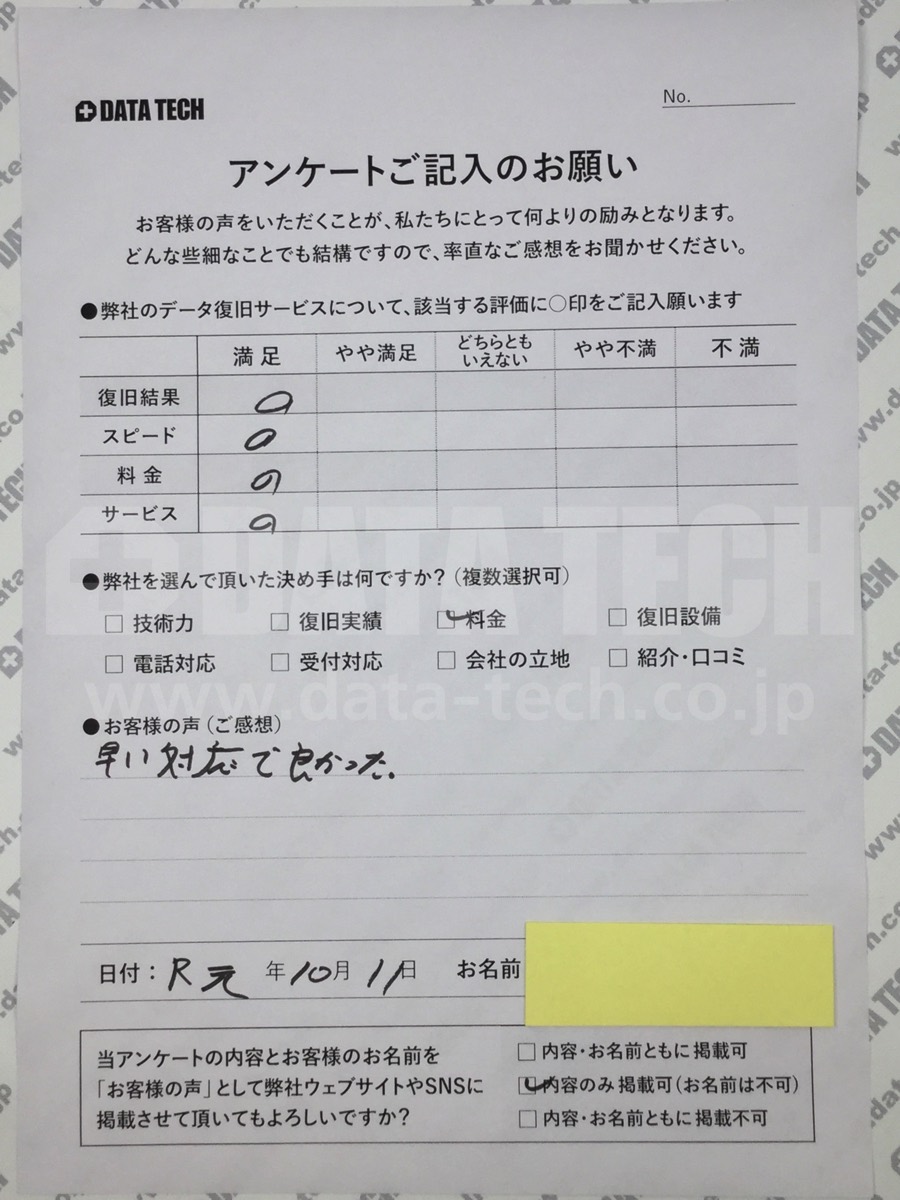 DATA TECH
No.
アンケートご記入のお願い
お客様の声をいただくことが、私たちにとって何よりの励みとなります。
どんな些細なことでも結構ですので、率直なご感想をお聞かせください。
●弊社のデータ復旧サービスについて、該当する評価に○印をご記入願います
満足 やや満足 どちらとも いえない やや不満 不満
復旧結果 ○
スピード ○
料金 ○
サービス ○
DATA TECH
●弊社を選んで頂いた決め手は何ですか?(複数選択可)
□ 技術力 □ 復旧実績 ☑ 料金 □ 復旧設備
□ 電話対応 □ 受付対応 □ 会社の立地 □ 紹介・口コミ
www.data-tech.co.jp
●お客様の声(ご感想)
早い対応で良かった。
日付: R元年10月11日 お名前
当アンケートの内容とお客様のお名前を
「お客様の声」として弊社ウェブサイトやSNSに
掲載させて頂いてもよろしいですか?
□ 内容・お名前ともに掲載可
☑ 内容のみ掲載可(お名前は不可)
□ 内容・お名前ともに掲載不可